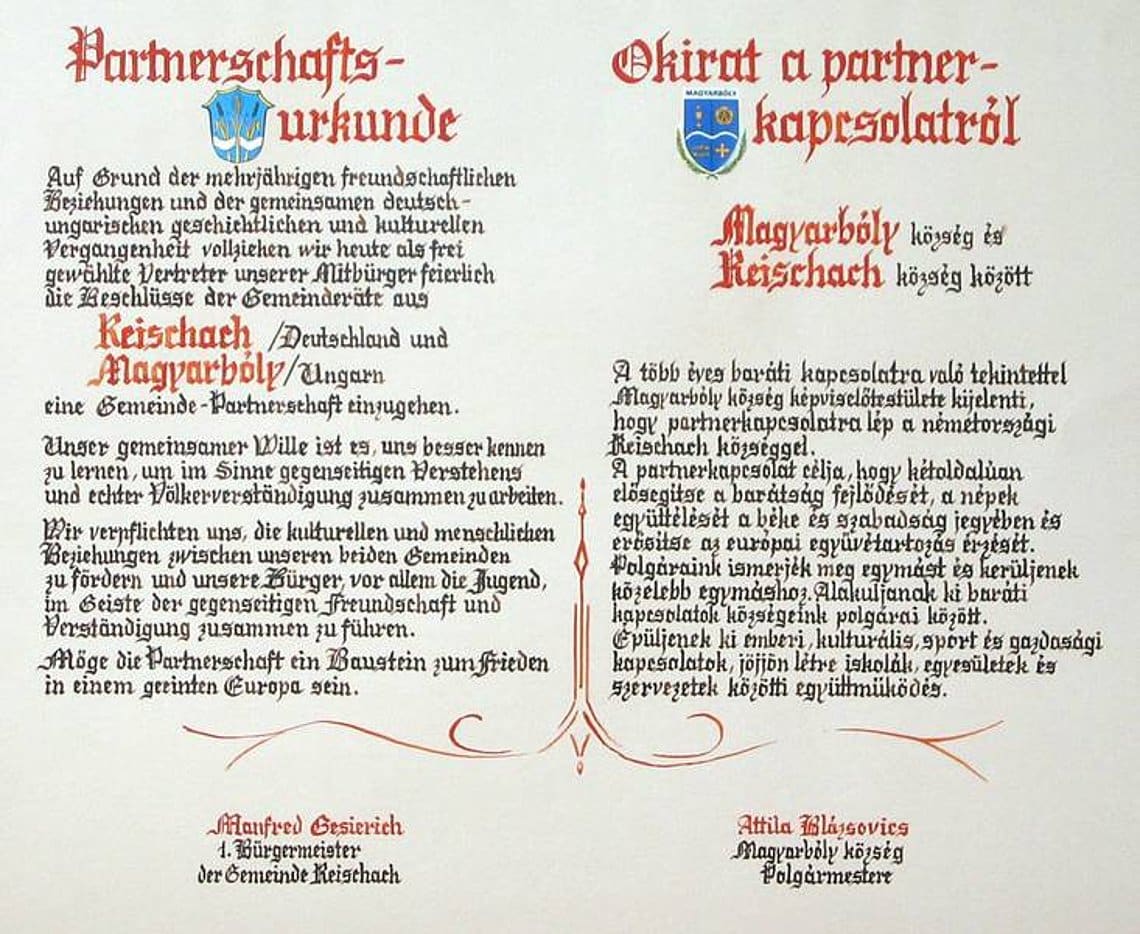 Partnerschafts-
urkunde
Auf Grund der mehrjährigen freundschaftlichen
Beziehungen und der gemeinsamen deutsch-
ungarischen geschichtlichen und kulturellen
Vergangenheit vollziehen wir heute als frei
gewählte Vertreter unserer Mitbürger feierlich
die Beschlüsse der Gemeinderäte aus
Reischach /Deutschland und
Magyarbóly/Ungarn
eine Gemeinde-Partnerschaft einzugehen.
Unser gemeinsamer Wille ist es, uns besser kennen
zu lernen, um im Sinne gegenseitigen Verstehens
und echter Völkerverständigung zusammen zu arbeiten.
Wir verpflichten uns, die kulturellen und menschlichen
Beziehungen zwischen unseren beiden Gemeinden
zu fördern und unsere Bürger, vor allem die Jugend,
im Geiste der gegenseitigen Freundschaft und
Verständigung zusammen zu führen.
Möge die Partnerschaft ein Baustein zum Frieden
in einem geeinten Europa sein.
Manfred Gesierich
1. Bürgermeister
der Gemeinde Reischach
Okirat a partner-
MAGYARBÓLY
kapcsolatról
Magyarbóly község és
Reischach község között
A több éves baráti kapcsolatra való tekintettel
Magyarbóly község képviselőtestülete kijelenti,
hogy partnerkapcsolatra lép a németországi
Reischach községgel.
A partnerkapcsolat célja, hogy kétoldalúan
elősegítse a barátság fejlődését, a népek
együttélését a béke és szabadság jegyében és
erősítse az európai együvétartozás érzését.
Polgáraink ismerjék meg egymást és kerüljenek
közelebb egymáshoz. Alakuljanak ki baráti
kapcsolatok községeink polgárai között.
Épüljenek ki emberi, kulturális, sport és gazdasági
kapcsolatok, jöjjön létre iskolák, egyesületek és
szervezetek közötti együttmüködés.
Attila Blázsovics
Magyarbóly község
Polgármestere